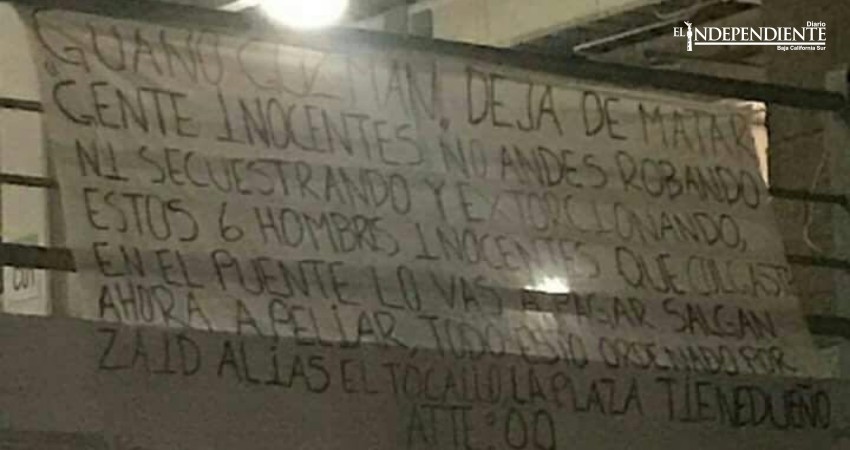 Diario
EL INDEPENDIENTE
Baja California Sur
GUANO GUZMAN, DEJA DE MATAR
GENTE INOCENTES, NO ANDES ROBANDO
NI SECUESTRANDO Y EXTORCIONANDO,
ESTOS 6 HOMBRES INOCENTES QUE COLGAST
EN EL PUENTE LO VAS A PAGAR SALGAN
AHORA A PELIAR, TODO ESTO ORDENADO POR
ZAID ALIAS EL TOCALLO LA PLAZA TIENE DUEÑO
ATTE: OO